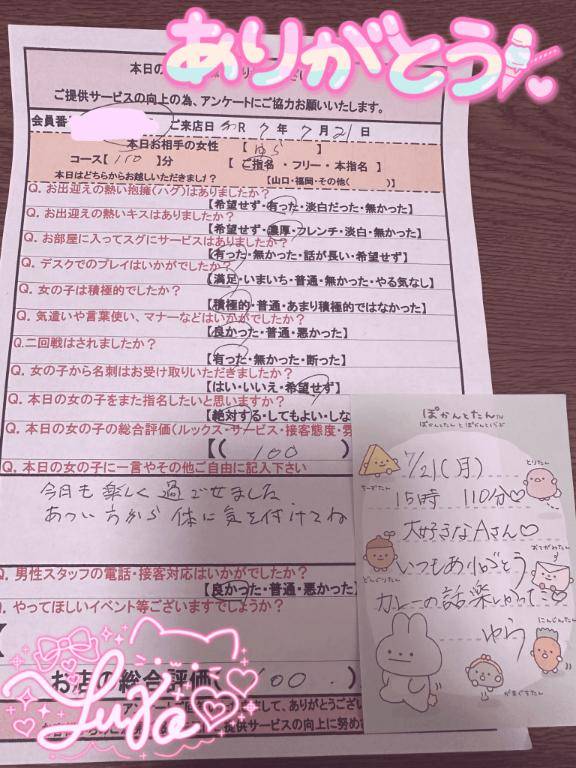 ありがとう
本日の
ご提供サービスの向上の為、アンケートにご協力お願いいたします。
会員番 ご来店日 R 7年 7月 21日
本日お相手の女性 【 ゆら 】
コース【110】分 【 ご指名・フリー・本指名 】
本日はどちらからお越しいただきました? 【山口・福岡・その他( )】
Q. お出迎えの熱い抱擁(ハグ)はありましたか?
【希望せず・有った・淡白だった・無かった】
Q. お出迎えの熱いキスはありましたか?
【希望せず・濃厚・フレンチ・淡白・無かった】
Q. お部屋に入ってスグにサービスはありましたか?
【有った・無かった・話が長い・希望せず】
Q. デスクでのプレイはいかがでしたか?
【満足・いまいち・普通・無かった・やる気なし】
Q. 女の子は積極的でしたか?
【積極的・普通・あまり積極的ではなかった】
Q. 気遣いや言葉使い、マナーなどはいかがでしたか?
【良かった・普通・悪かった】
Q.二回戦はされましたか?
【有った・無かった・断った】
Q. 女の子から名刺はお受け取りいただきましたか?
【はい・いいえ・希望せず】
Q. 本日の女の子をまた指名したいと思いますか?
【絶対する・してもよい・しな
Q. 本日の女の子の総合評価(ルックス・サービス・接客態度・雰
【( 100
Q. 本日の女の子に一言やその他ご自由に記入下さい
今日も楽しく過ごせました
あつい方から体に気を付けてね
Q. 男性スタッフの電話・接客対応はいかがでしたか?
【良かった・普通・悪かった】
Q. やってほしいイベント等ございますでしょうか?
お店の総合評価( 100 )
アンケートにご して、ありがとうござい
提供サービスの向上に努め
Yura
ぽかんとたん
ぽかんとたんとぽかんとらいふ
7/21(月)
15時 110分♡
大好きなAさん♡
いつもありがとう
カレーの話楽しかった
ゆら
ちーずたん
とりたん
おてがみたん
どんぐりたん
にんじんたん
がまぐちたん